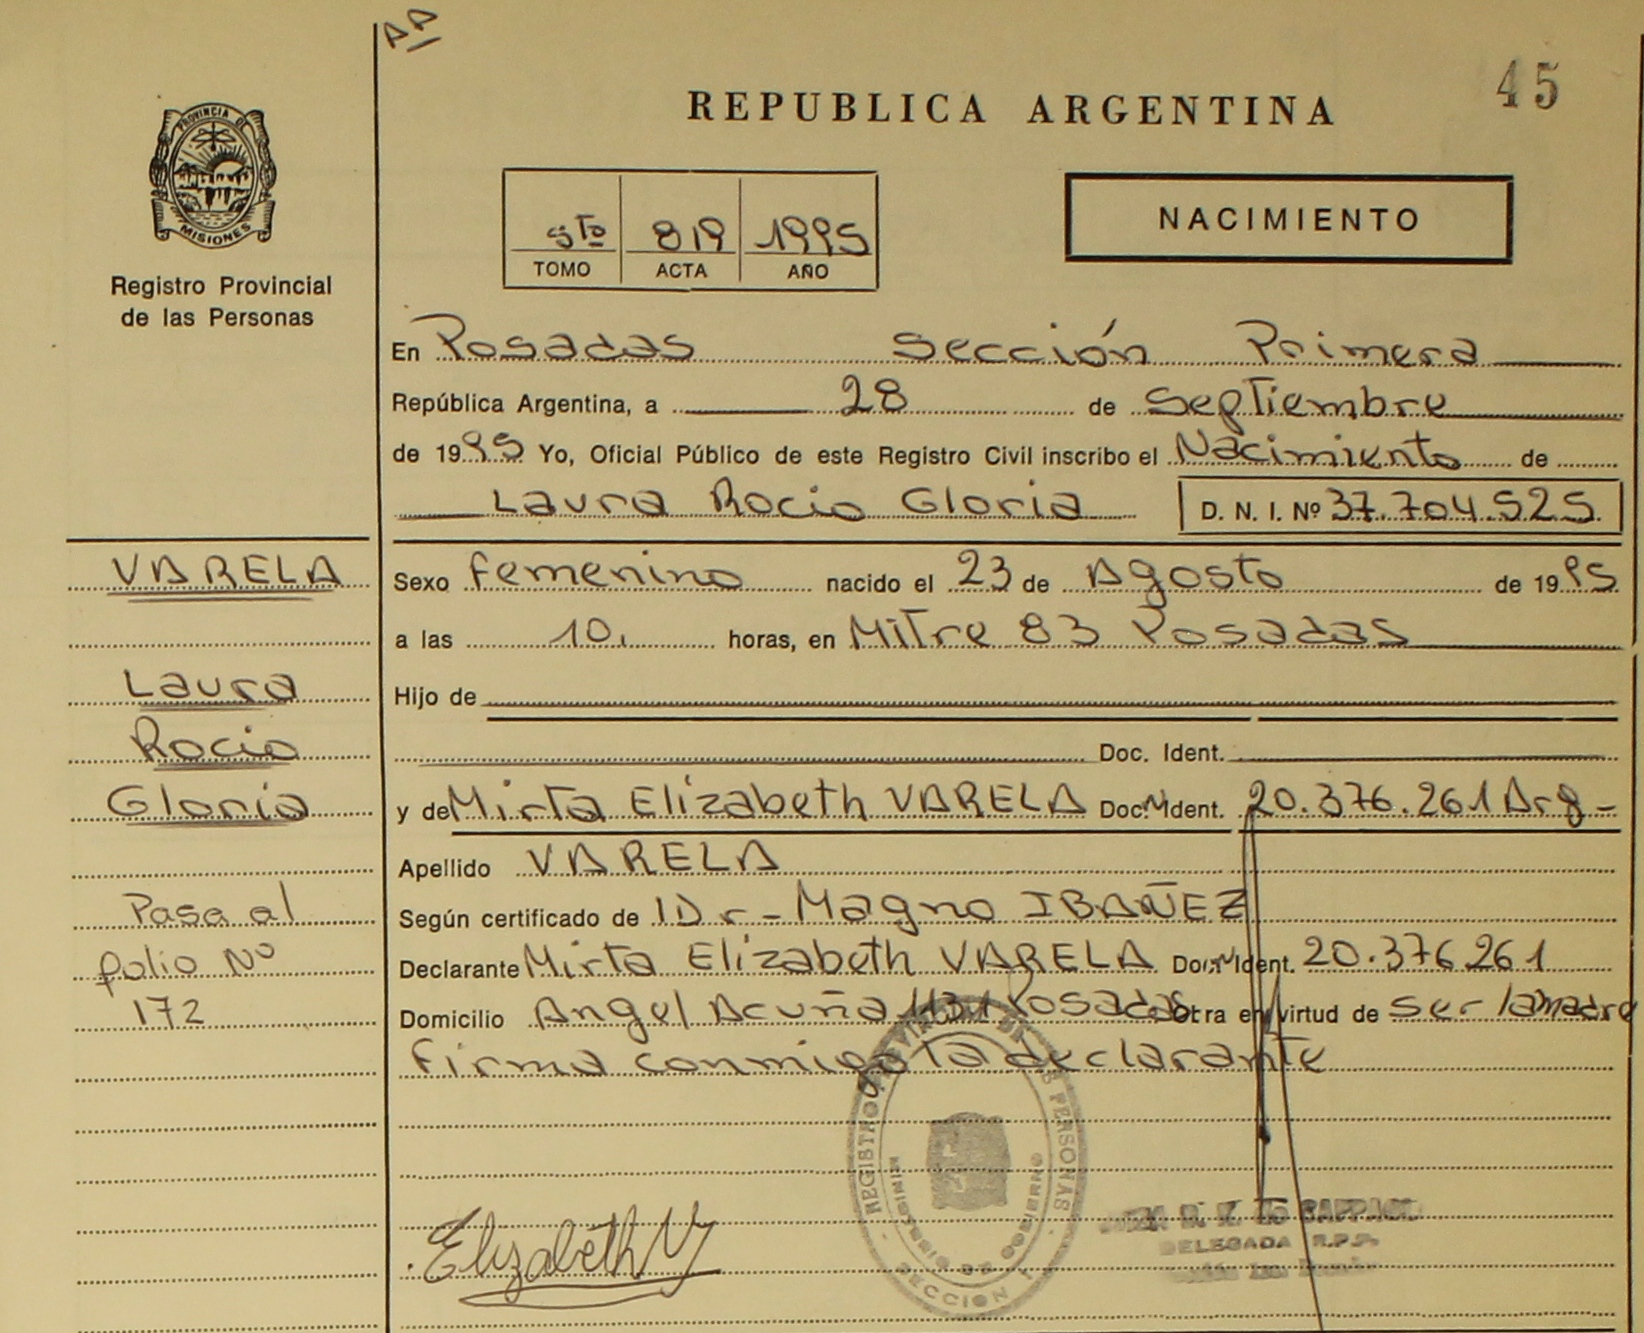 AA
45
REPUBLICA ARGENTINA
PROVINCIA DE
MISIONES
Registro Provincial
de las Personas
5to 819 1995
TOMO ACTA AÑO
NACIMIENTO
En Posadas Sección Primera
República Argentina, a 28 de Septiembre
de 1995 Yo, Oficial Público de este Registro Civil inscribo el Nacimiento de
Laura Rocio Gloria D. N. I. Nº 37.704.525
VARELA
Sexo femenino nacido el 23 de Agosto de 1995
a las 10, horas, en Mitre 83 Posadas
Laura
Hijo de
Rocio
Doc. Ident.
Gloria
y de Mirta Elizabeth VARELA Doc. Ident. 20.376.261 Arg-
Apellido VARELA
Pasa al
Según certificado de Dr- Magno IBAÑEZ
folio Nº
Declarante Mirta Elizabeth VARELA Doc. Ident. 20.376.261
172
Domicilio Angel Acuña 1131 Posadas Otra en virtud de ser la madre
firma conmigo la declarante
REGISTRO PROVINCIAL DE PERSONAS
MINISTERIO DE GOBIERNO
SECCION
Elizabeth V
DELEGADA R.P.P.